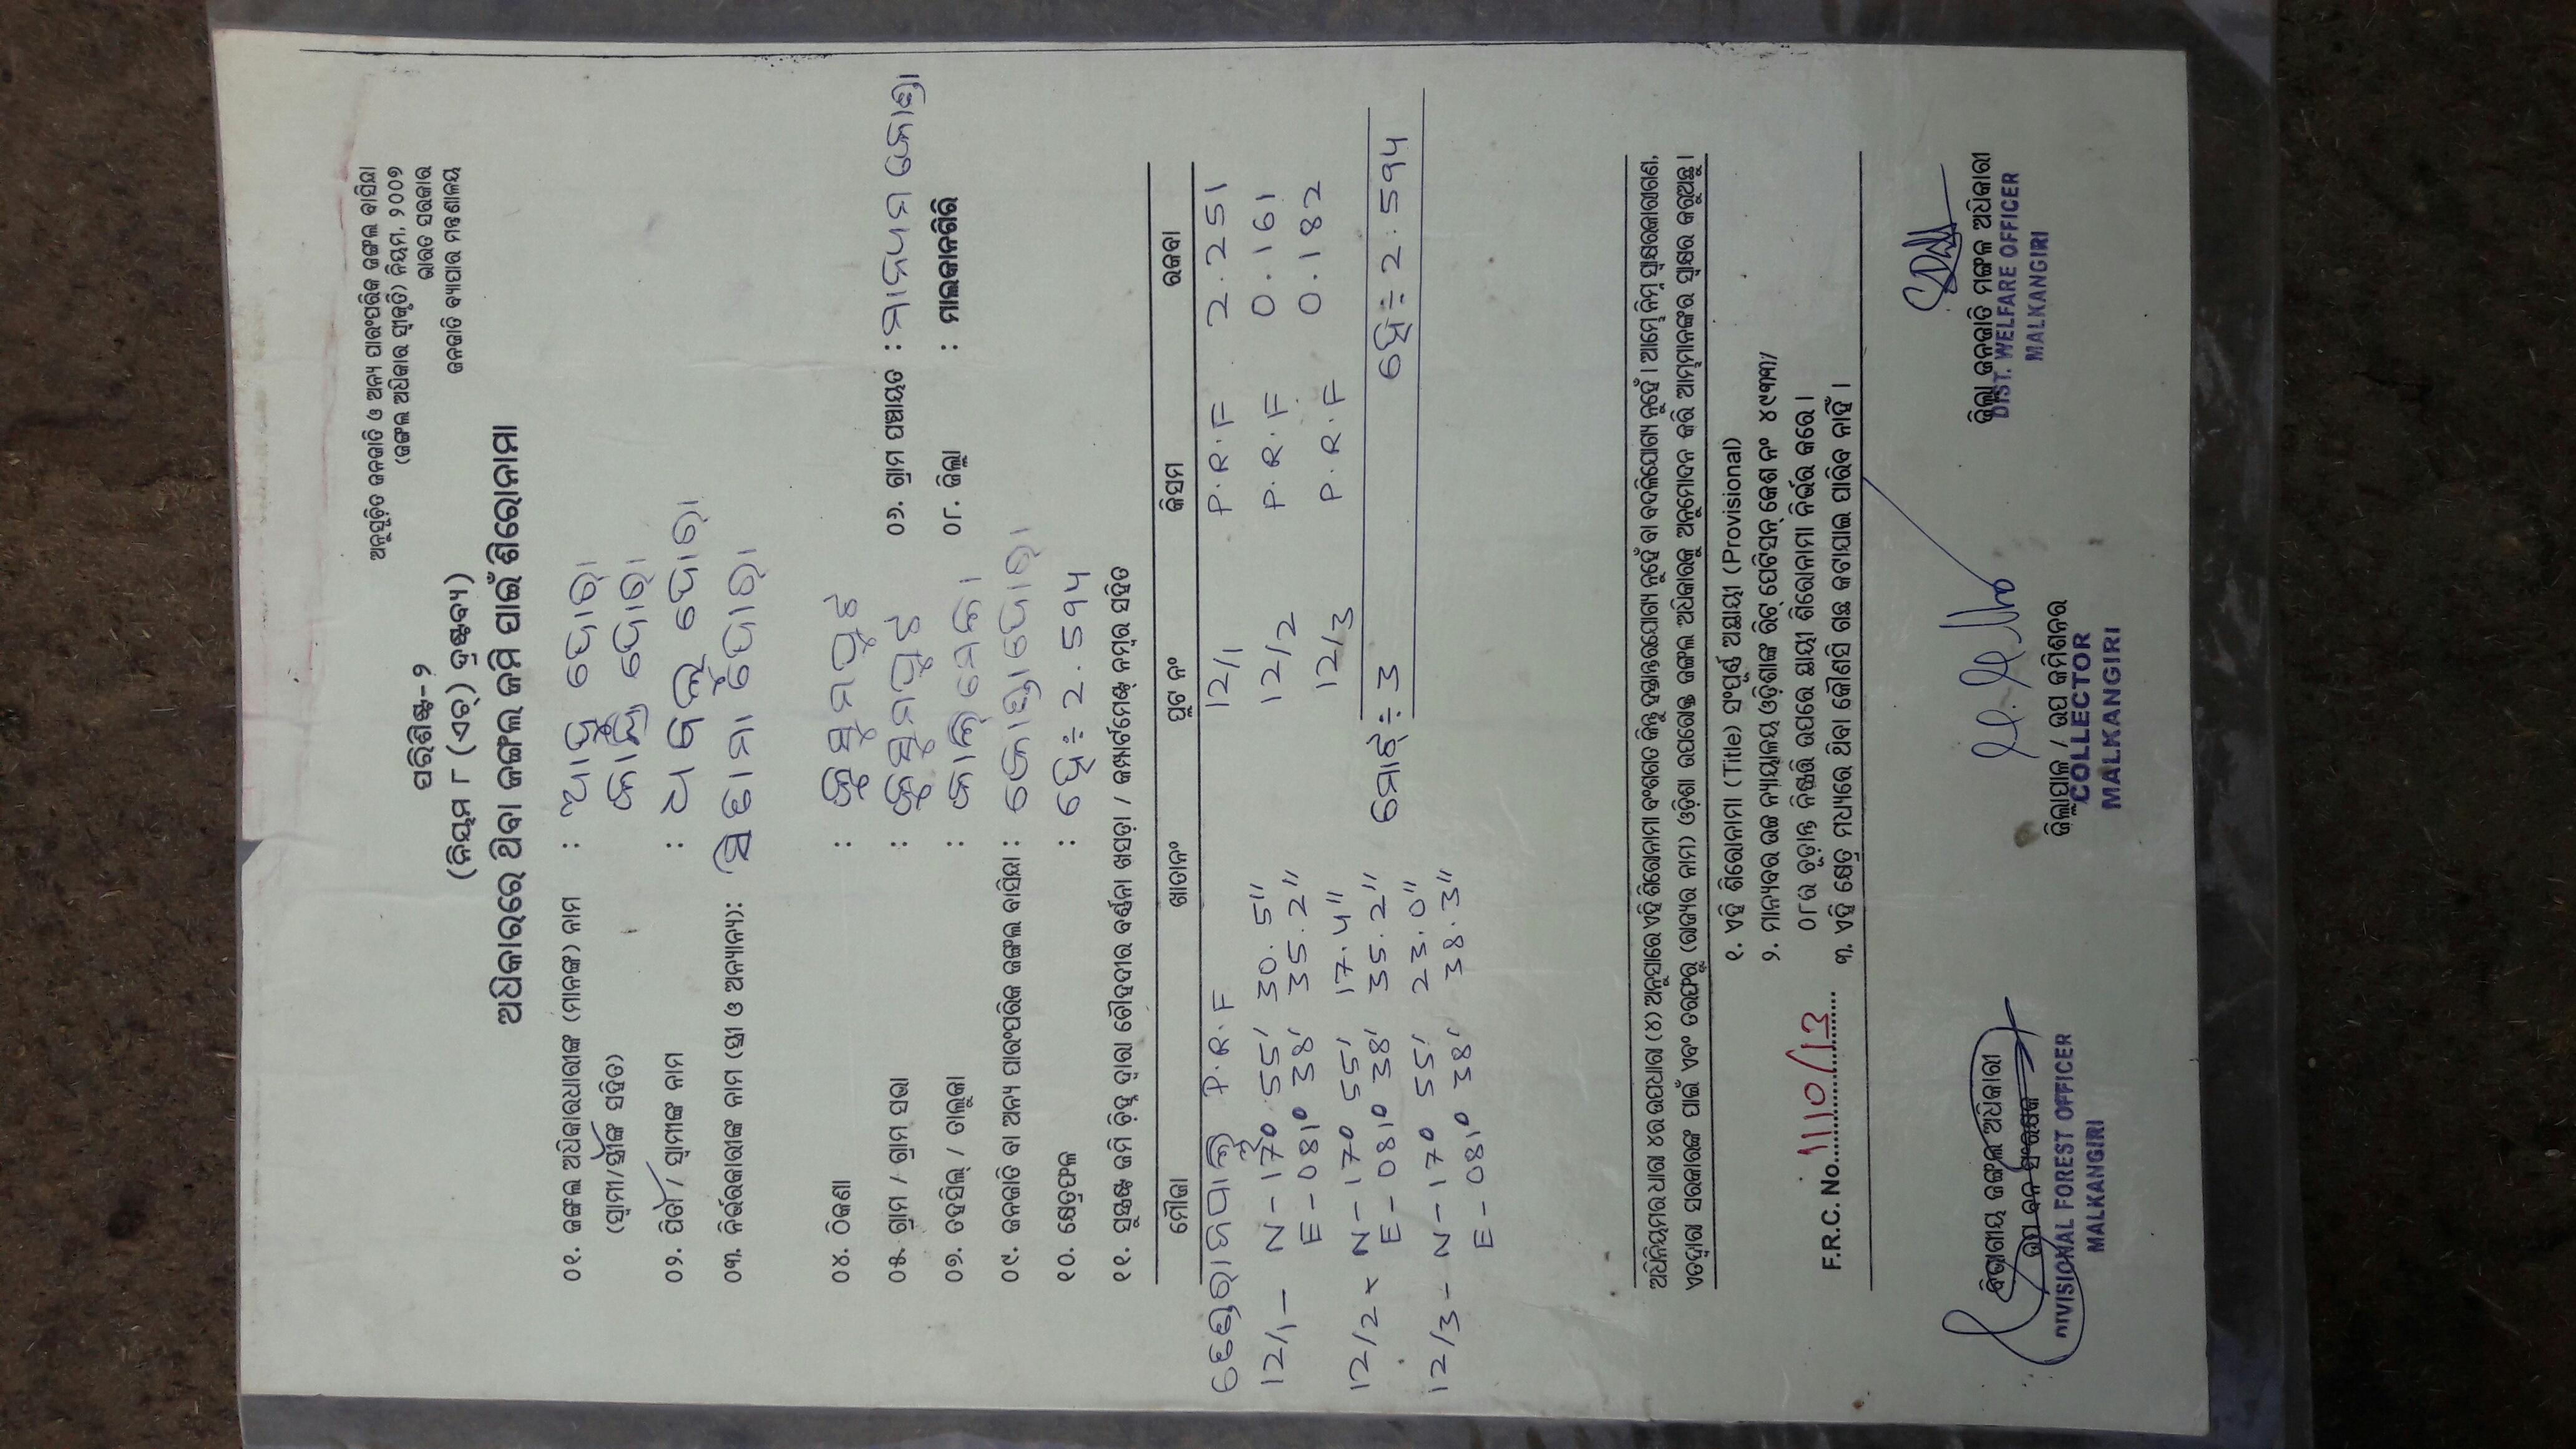 ଅନୁସୂଚିତ ଜନଜାତି ଓ ଅନ୍ୟ ପାରଂପରିକ ଜଙ୍ଗଲ ବାସିନ୍ଦା
(ଜଙ୍ଗଲ ଅଧିକାର ସ୍ୱୀକୃତି) ନିୟମ, ୨୦୦୭
ଭାରତ ସରକାର
ଜନଜାତି ବ୍ୟାପାର ମନ୍ତ୍ରଣାଳୟ
ପରିଶିଷ୍ଟ-୨
(ନିୟମ ୮ (ଏଚ୍) ଦ୍ରଷ୍ଟବ୍ୟ)
ଅଧିକାରରେ ଥିବା ଜଙ୍ଗଲ ଜମି ପାଇଁ ଶିରୋନାମା
୦୧. ଜଙ୍ଗଲ ଅଧିକାରଧାରୀଙ୍କ (ମାନଙ୍କ) ନାମ :
(ସ୍ୱାମୀ/ସ୍ତ୍ରୀଙ୍କ ସହିତ)
୦୨. ପିତା / ସ୍ୱାମୀଙ୍କ ନାମ :
୦୩. ନିର୍ଭରକାରୀଙ୍କ ନାମ (ସ୍ତ୍ରୀ ଓ ଅନ୍ୟାନ୍ୟ):
୦୪. ଠିକଣା :
୦୫. ଗ୍ରାମ / ଗ୍ରାମ ସଭା : ୦୬. ଗ୍ରାମ ପଞ୍ଚାୟତ :
୦୭. ତହସିଲ୍ / ତାଲୁକା : ୦୮. ଜିଲ୍ଲା : ମାଲକାନଗିରି
୦୯. ଜନଜାତି ବା ଅନ୍ୟ ପାରଂପରିକ ଜଙ୍ଗଲ ବାସିନ୍ଦା :
୧୦. କ୍ଷେତ୍ରଫଳ : ହେ÷ 2.594
୧୧. ସ୍ପଷ୍ଟ ଜମି ଚିହ୍ନ ଦ୍ୱାରା ଚୌହଦୀର ବର୍ଣ୍ଣନା ଖସଡ଼ା / କମ୍ପାର୍ଟମେଣ୍ଟ ନମ୍ବର ସହିତ
ମୌଜା ଖାତାନଂ ପ୍ଲଟ ନଂ କିସମ ରକବା
P.R.F 12/1 P.R.F 2.251
12/1 - N-17° 55' 30.5" 12/2 P.R.F 0.161
E-081° 38' 35.2" 12/3 P.R.F 0.182
12/2 - N-17° 55' 17.4"
E-081° 38' 35.2" ମୋଟ÷ 3 ହେ÷ 2.594
12/3 - N-17° 55' 23.0"
E-081° 38' 38.3"
ଅଧିନିୟମର ଧାରା ୪ର ଉପଧାରା (୪) ଅନୁସାରେ ଏହି ଶିରୋନାମା ବଂଶଗତ କିନ୍ତୁ ହସ୍ତାନ୍ତରଯୋଗ୍ୟ ନୁହେଁ ବା ବଦଳିଯୋଗ୍ୟ ନୁହେଁ । ଆମ୍ଭେ ନିମ୍ନ ସ୍ୱାକ୍ଷରକାରୀଗଣ,
ଏତଦ୍ୱାରା ସରକାରଙ୍କ ପାଇଁ ଏବଂ ତରଫରୁ (ରାଜ୍ୟର ନାମ) ଓଡ଼ିଶା ଉପରୋକ୍ତ ଜଙ୍ଗଲ ଅଧିକାରକୁ ଅନୁମୋଦନ କରି ଆମ୍ଭମାନଙ୍କର ସ୍ୱାକ୍ଷର କରୁଅଛୁ ।
୧. ଏହି ଶିରୋନାମା (Title) ସଂପୂର୍ଣ୍ଣ ଅସ୍ଥାୟୀ (Provisional)
୨. ମାନ୍ୟବର ଉଚ୍ଚ ନ୍ୟାୟାଳୟ ଓଡ଼ିଶାଙ୍କ ରିଟ୍ ପେଟିସନ୍ କେଶ ନଂ ୪୯୩୩/
୦୮ର ଚୂଡ଼ାନ୍ତ ନିଷ୍ପତ୍ତି ଉପରେ ସ୍ଥାୟୀ ଶିରୋନାମା ନିର୍ଭର କରେ ।
୩. ଏହି କ୍ଷେତ୍ର ମଧ୍ୟରେ ଥିବା କୌଣସି ଗଛ କଟାଯାଇ ପାରିବ ନାହିଁ ।
F.R.C. No. 1110/13
ବିଭାଗୀୟ ଜଙ୍ଗଲ ଅଧିକାରୀ
ଉପ ବନ ସଂରକ୍ଷକ
DIVISIONAL FOREST OFFICER
MALKANGIRI
ଜିଲ୍ଲାପାଳ / ଉପ କମିଶନର
COLLECTOR
MALKANGIRI
ଜିଲ୍ଲା ଜନଜାତି ମଙ୍ଗଳ ଅଧିକାରୀ
DIST. WELFARE OFFICER
MALKANGIRI